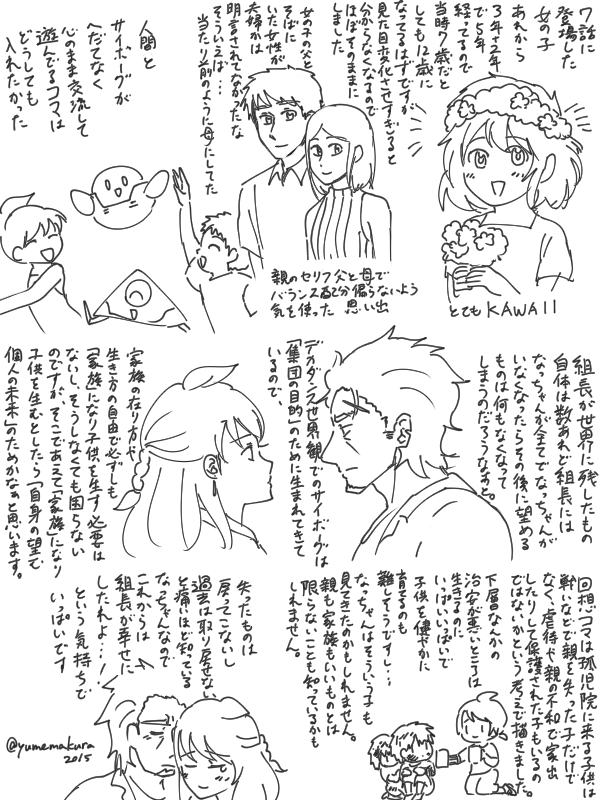 7話に
登場した
女の子
あれから
3年+2年
で5年
経ってるので
当時7歳だと
しても12歳に
なってるはずですが
見た目変化させすぎると
分からなくなるので
ほぼそのままに
しました
とてもKAWAII
女の子の父と
そばに
いた女性が
夫婦かは
明言されてなかったな
そういえば…
当たり前のように母にしてた
親のセリフ父と母で
バランス配分偏らないよう
気を使った 思い出
人間と
サイボーグが
へだてなく
心のまま交流して
遊んでるコマは
どうしても
入れたかった
組長が世界に残したもの
自体は数あれど組長には
なっちゃんが全てでなっちゃんが
いなくなったらその後に望める
ものは何もなくなって
しまうのだろうなあと。
デカダンス世界観でのサイボーグは
「集団の目的」のために生まれてきて
いるので、
家族の在り方や
生き方の自由で必ずしも
「家族になり子供を生す必要は
ないし、そうしなくても困らない
のですが、そこであえて「家族」になり
子供を生むとしたら「自身の望で
個人の未来」のためかなぁと思います。
回想コマは孤児院に来る子供は
戦いなどで親を失った子だけで
なく、虐待や親の不和で家出
したりして保護された子もいるの
ではないかという考えで描きました。
下層なんかの
治安が悪いところは
生きるのに
いっぱいいっぱいで
子供を健やかに
育てるのも
難しそうですし…
なっちゃんはそういう子も
見てきたのかもしれません。
親も家族もいいものとは
限らないことも知っているかも
しれません。
失ったものは
戻ってこないし
過去は取り戻せない
と痛ほど知っている
なっちゃんなので
これからは
組長が幸せに
したれよ…!
という気持ちで
いっぱいです
@yumemakura
2015